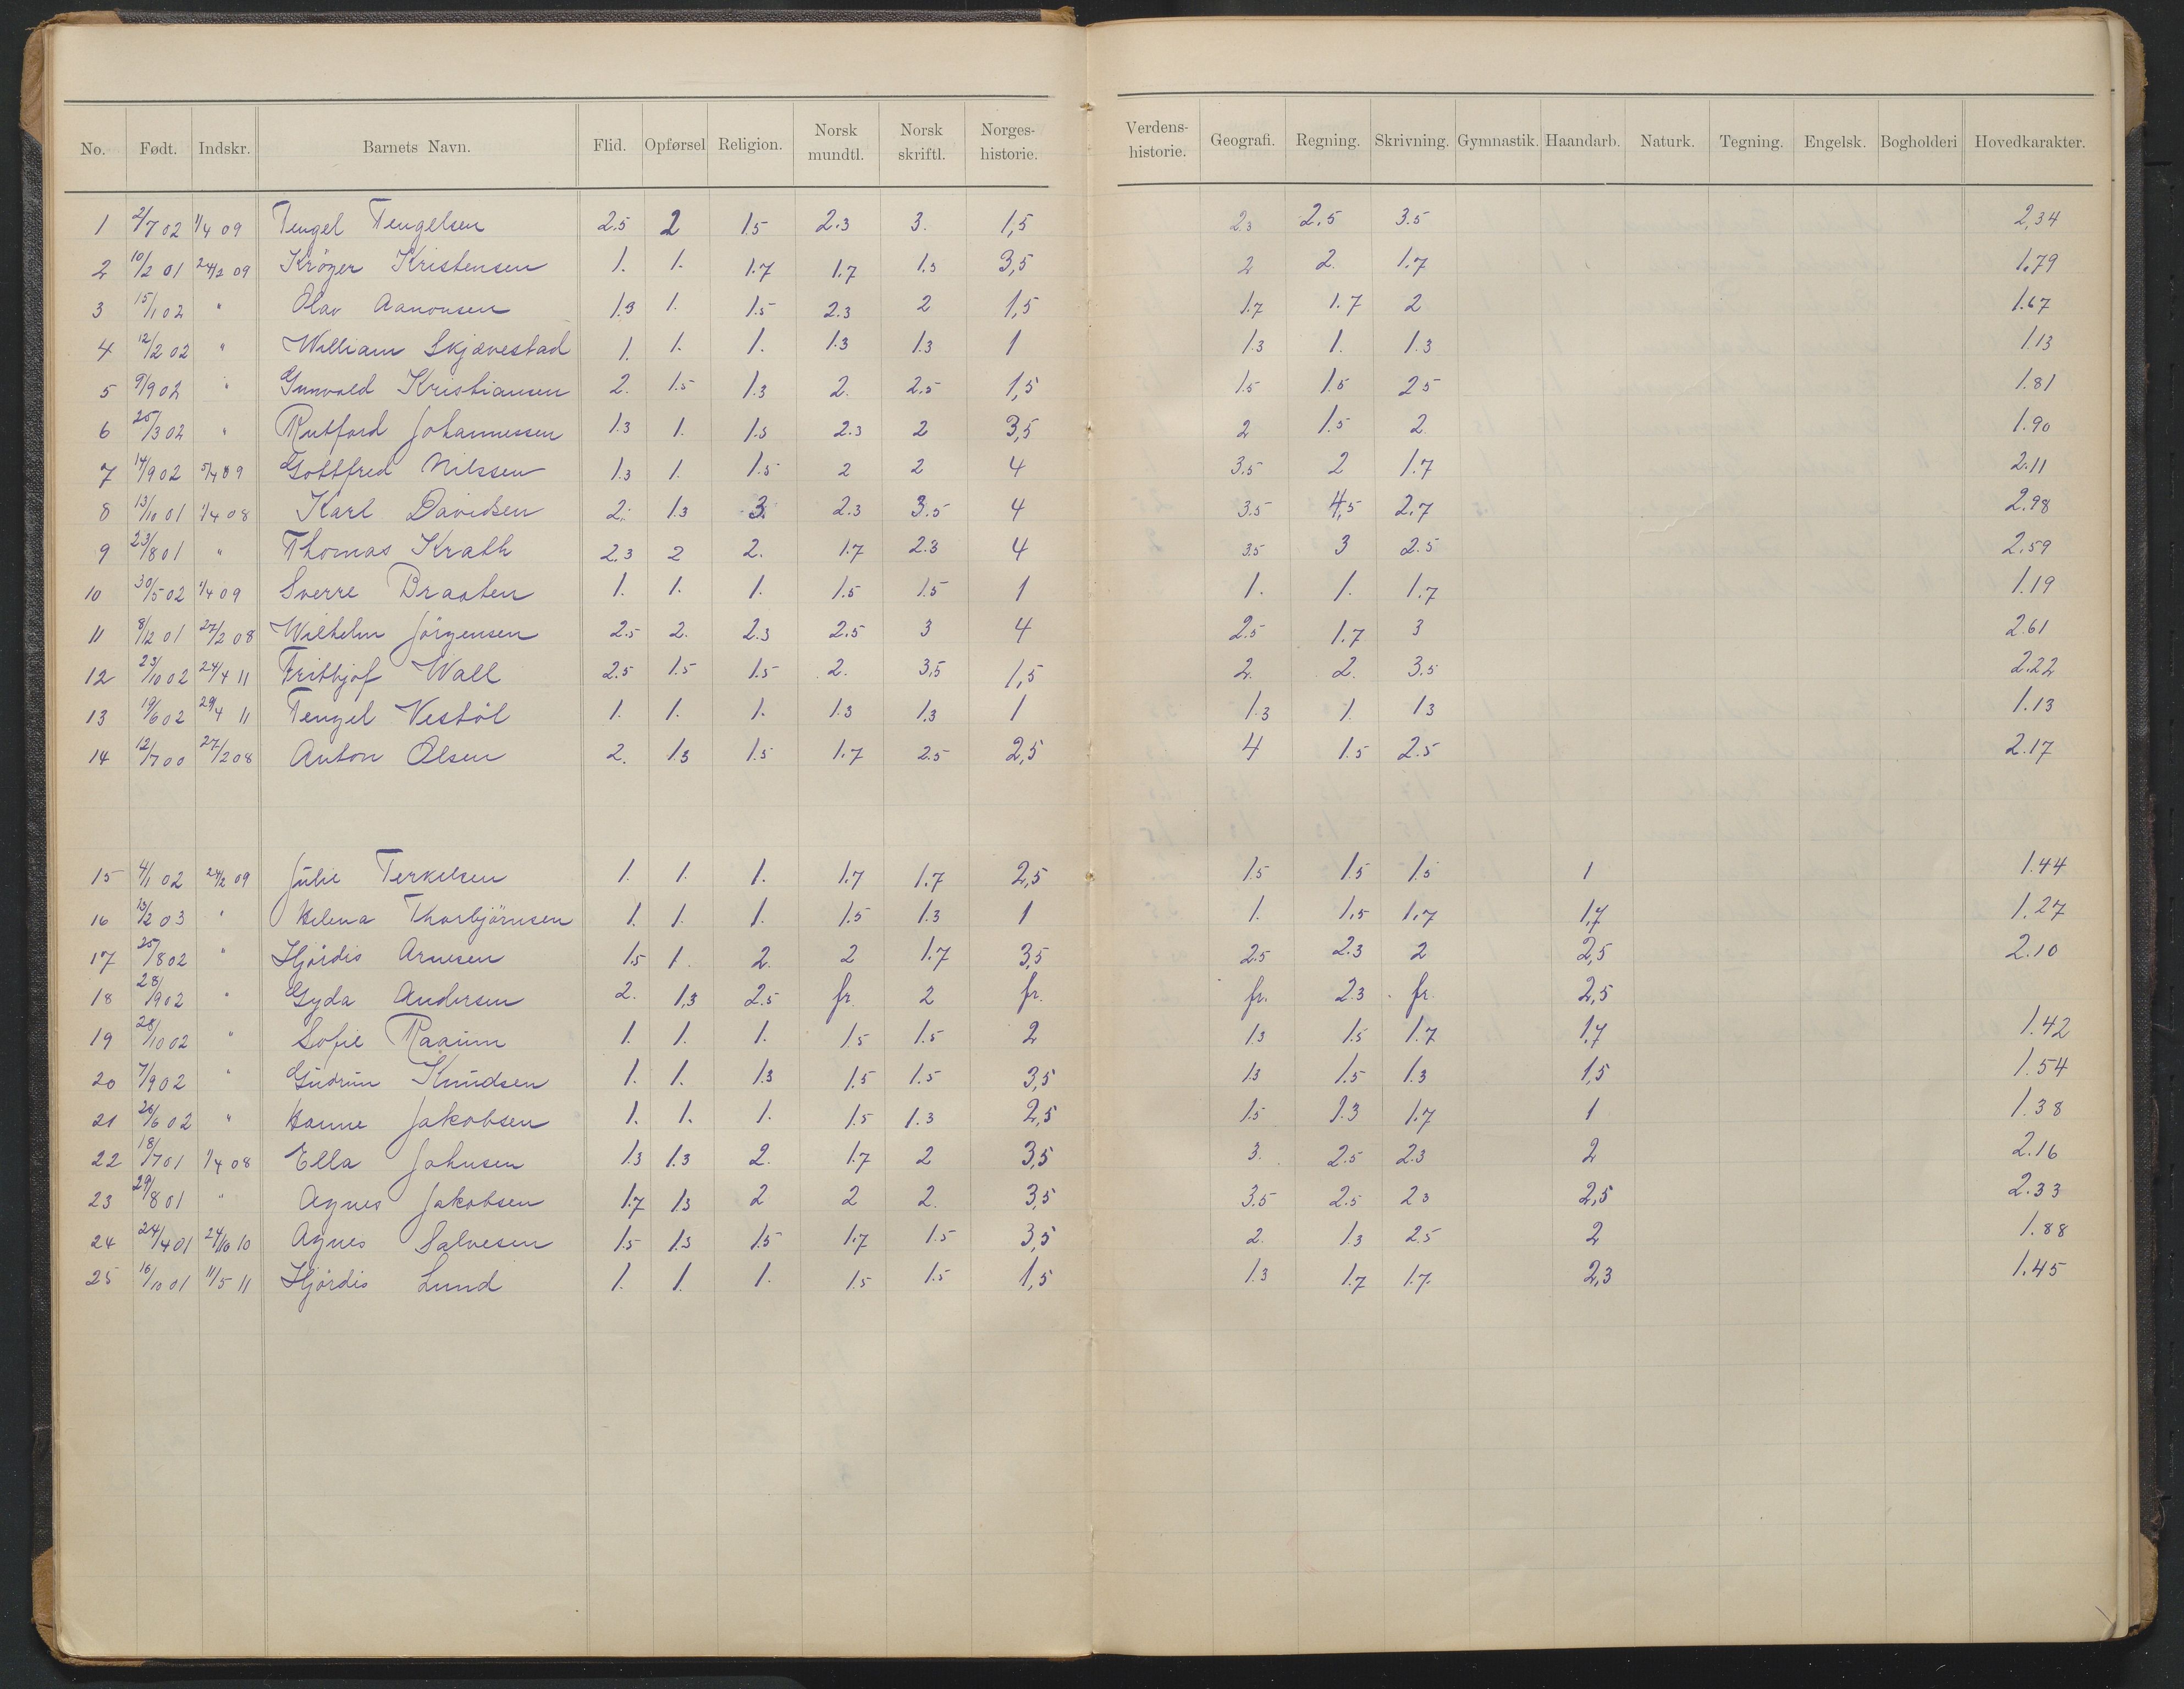 No. Født. Indskr. Barnets Navn. Flid. Opførsel Religion. Norsk mundtl. Norsk skriftl. Norges-historie. Verdens-historie. Geografi. Regning. Skrivning. Gymnastik. Haandarb. Naturk. Tegning. Engelsk. Bogholderi Hovedkarakter.
1 2/7 02 1/4 09 Tengel Tengelsen 2.5 2 1.5 2.3 3. 1,5 2.3 2.5 3.5 2,34
2 10/2 01 24/2 09 Kröger Kristensen 1. 1. 1.7 1.7 1.3 3,5 2 2. 1.7 1.79
3 15/1 02 " Olav Aanonsen 1.3 1. 1.5 2.3 2 1,5 1.7 1.7 2 1.67
4 12/2 02 " William Skjævestad 1. 1. 1. 1.3 1.3 1 1.3 1. 1.3 1.13
5 9/9 02 " Gunvald Kristiansen 2. 1.5 1.3 2. 2.5 1,5 1.5 1.5 2.5 1.81
6 25/3 02 " Rutford Johannessen 1.3 1. 1.5 2.3 2 3,5 2 1.5 2 1.90
7 14/9 02 5/4 09 Gottfred Nilssen 1.3 1. 1.5 2 2 4 3.5 2 1.7 2.11
8 13/10 01 1/4 08 Karl Davidsen 2. 1.3 3. 2.3 3.5 4 3.5 4,5 2.7 2.98
9 23/8 01 " Thomas Krath 2.3 2 2. 1.7 2.3 4 3.5 3 2.5 2.59
10 30/5 02 1/4 09 Sverre Braaten 1. 1. 1. 1.5 1.5 1 1. 1. 1.7 1.19
11 8/12 01 27/2 08 Wilhelm Jörgensen 2.5 2. 2.3 2.5 3 4 2.5 1.7 3 2.61
12 23/10 02 24/4 11 Frithjof Wall 2.5 1.5 1.5 2. 3,5 1,5 2. 2. 3.5 2.22
13 19/6 02 29/4 11 Tengel Vestöl 1. 1. 1. 1.3 1.3 1 1.3 1. 1.3 1.13
14 12/7 00 27/2 08 Anton Olsen 2. 1.3 1.5 1.7 2.5 2,5 4 1.5 2.5 2.17
15 4/1 02 24/2 09 Julie Terkelsen 1. 1. 1. 1.7 1.7 2,5 1.5 1.5 1.5 1 1.44
16 13/2 03 " Helena Thorbjörnsen 1. 1. 1. 1.5 1.3 1 1. 1.5 1.7 1,7 1.27
17 25/8 02 " Hjördis Arnesen 1.5 1. 2. 2 1.7 3,5 2.5 2.3 2 2,5 2.10
18 28/9 02 " Gyda Andersen 2. 1,3 2.5 fr. 2 fr. fr. 2.3 fr. 2,5
19 28/10 02 " Sofie Raaum 1. 1. 1. 1.5 1.5 2 1.3 1.5 1.7 1,7 1.42
20 7/9 02 " Gudrun Knudsen 1. 1. 1.3 1.5 1.5 3,5 1.3 1.5 1.3 1,5 1.54
21 26/6 02 " Hanne Jakobsen 1. 1. 1. 1.5 1.3 2,5 1.5 1.3 1.7 1 1.38
22 18/7 01 1/4 08 Ella Johnsen 1.3 1.3 2. 1.7 2 3,5 3. 2.5 2.3 2 2.16
23 29/8 01 " Agnes Jakobsen 1.7 1.3 2 2 2. 3,5 3.5 2.5 2.3 2,5 2.33
24 24/4 01 24/10 10 Agnes Salvesen 1.5 1.3 1.5 1.7 1.5 3,5 2. 1.3 2.5 2 1.88
25 16/10 01 11/5 11 Hjördis Lund 1. 1. 1. 1.5 1.5 1,5 1.3 1.7 1.7. 2,3 1.45